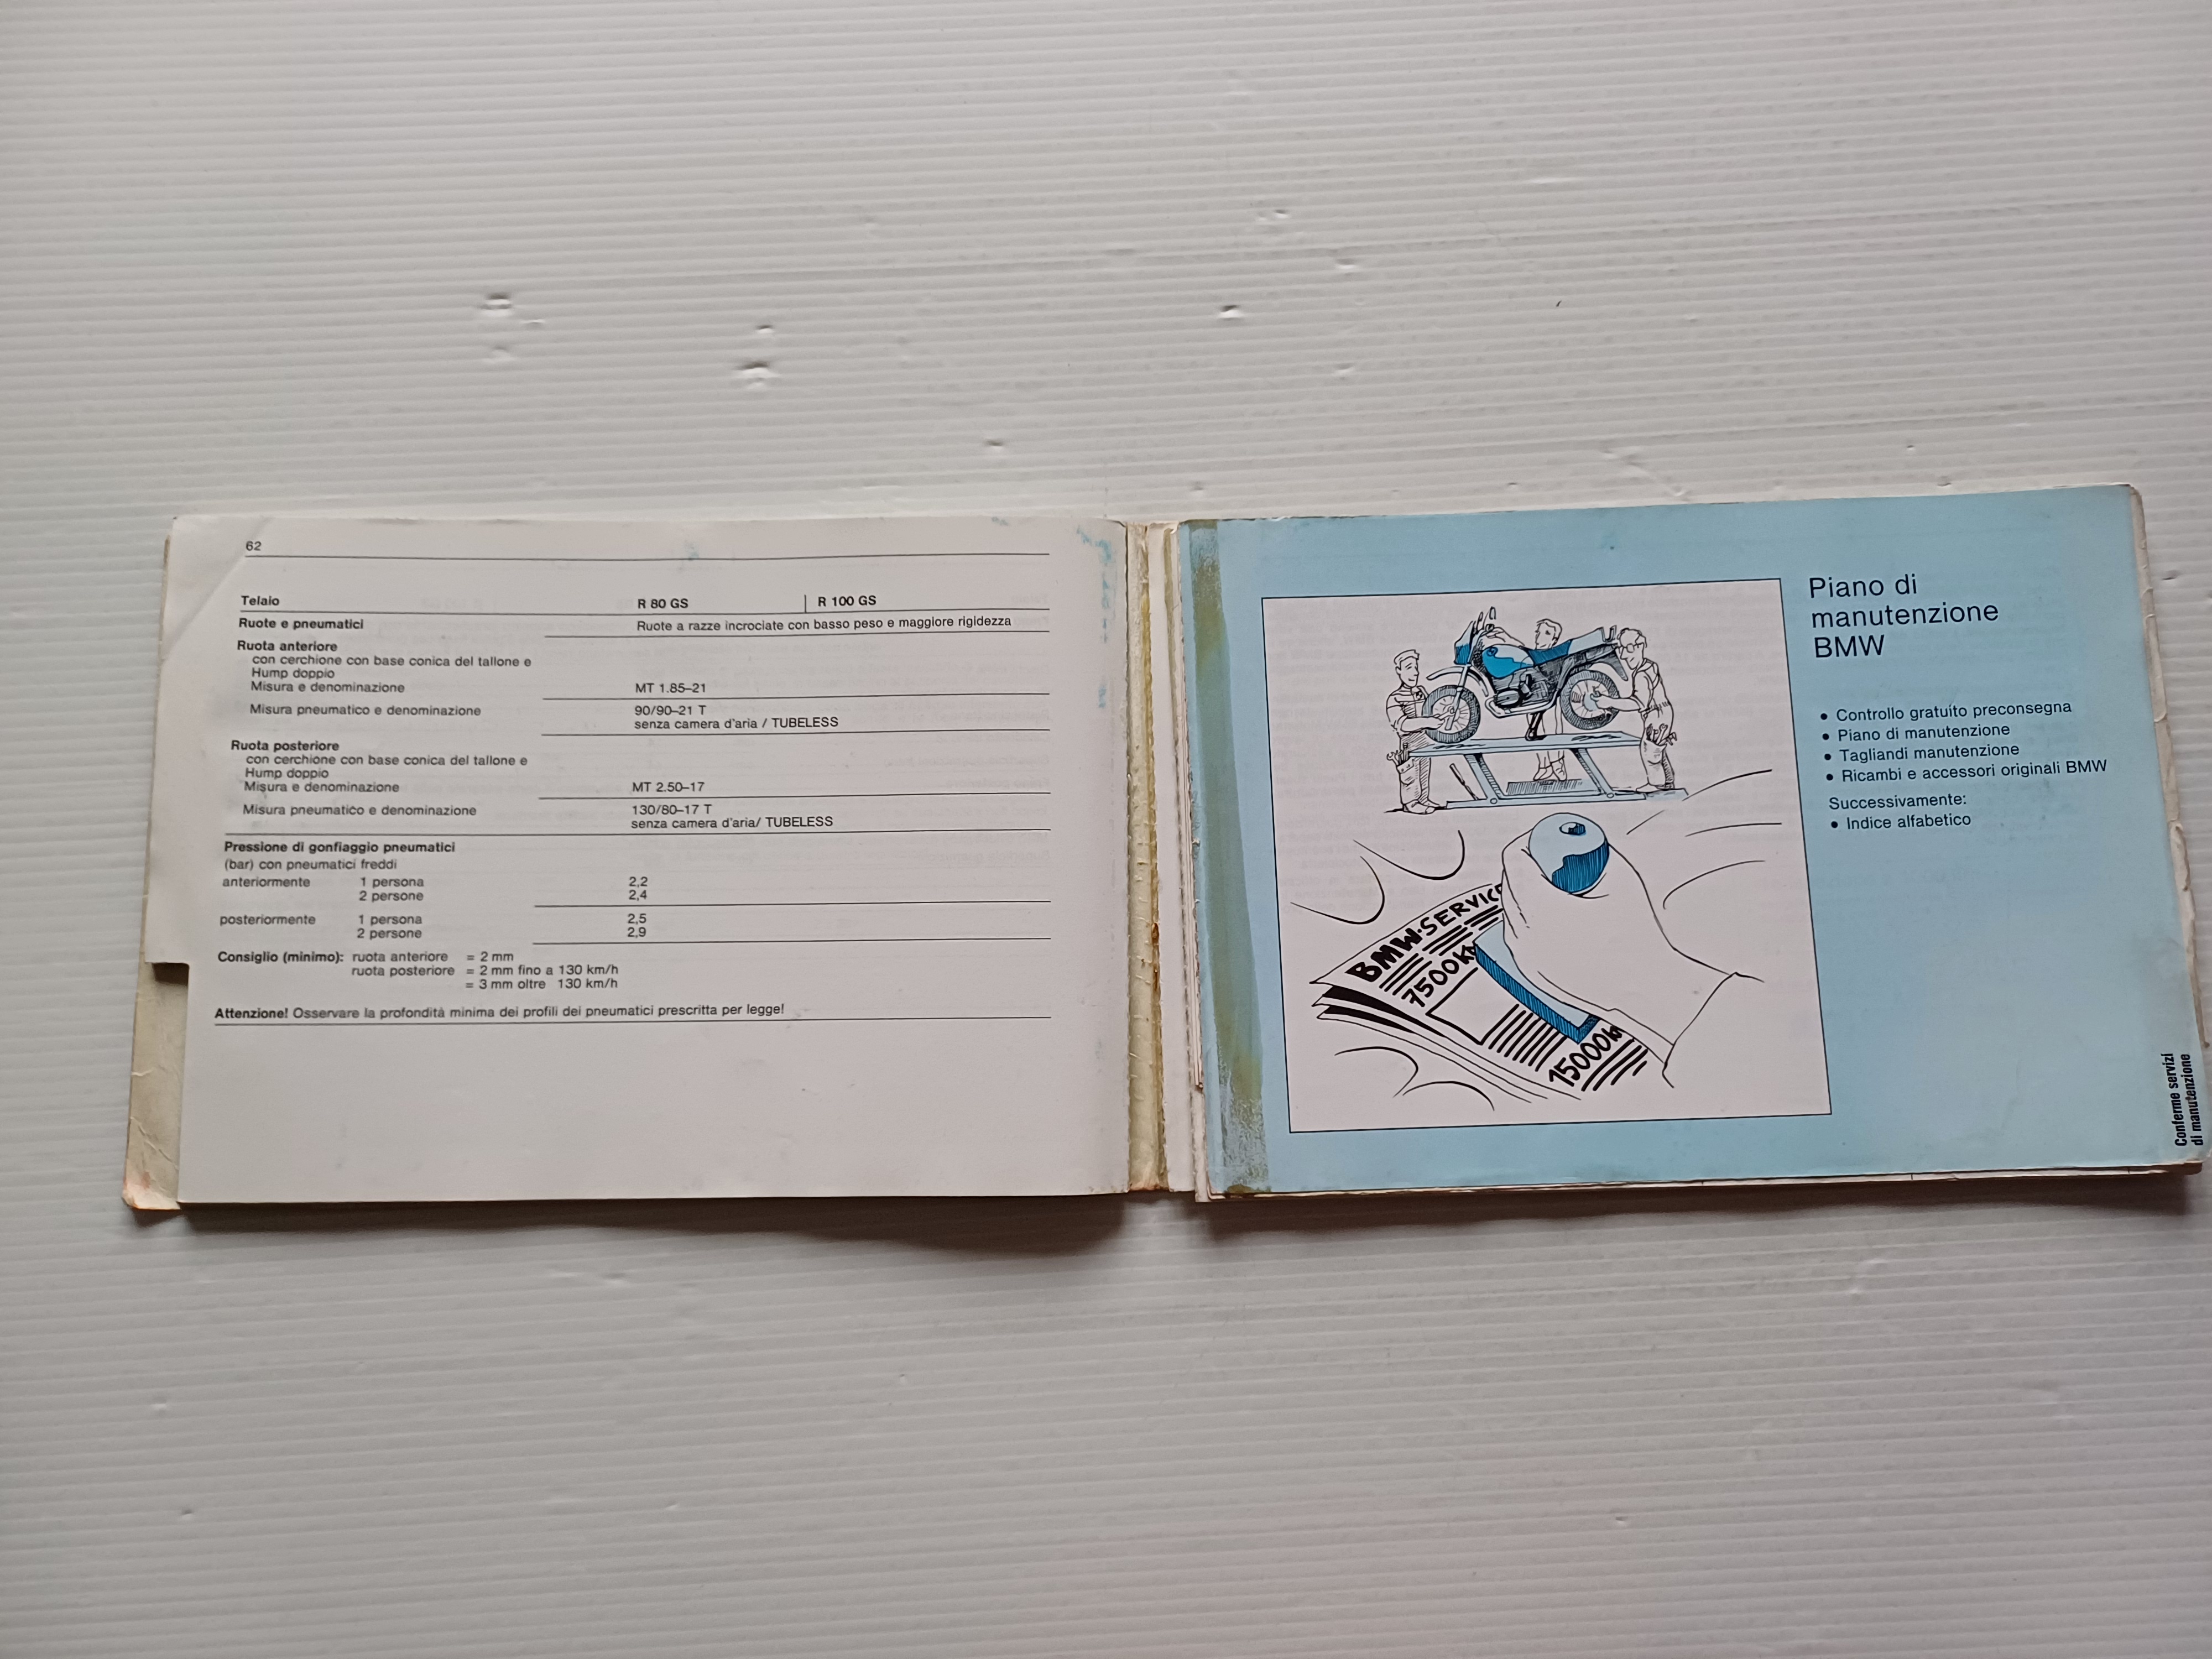 62
Telaio R 80 GS R 100 GS
Ruote e pneumatici Ruote a razze incrociate con basso peso e maggiore rigidezza
Ruota anteriore
con cerchione con base conica del tallone e
Hump doppio
Misura e denominazione MT 1.85–21
Misura pneumatico e denominazione 90/90–21 T
senza camera d'aria / TUBELESS
Ruota posteriore
con cerchione con base conica del tallone e
Hump doppio
Misura e denominazione MT 2.50–17
Misura pneumatico e denominazione 130/80–17 T
senza camera d'aria/ TUBELESS
Pressione di gonfiaggio pneumatici
(bar) con pneumatici freddi
anteriormente 1 persona 2,2
2 persone 2,4
posteriormente 1 persona 2,5
2 persone 2,9
Consiglio (minimo): ruota anteriore = 2 mm
ruota posteriore = 2 mm fino a 130 km/h
= 3 mm oltre 130 km/h
Attenzione! Osservare la profondità minima dei profili dei pneumatici prescritta per legge!
BMW-SERVICE
7500km
15000km
Piano di
manutenzione
BMW
• Controllo gratuito preconsegna
• Piano di manutenzione
• Tagliandi manutenzione
• Ricambi e accessori originali BMW
Successivamente:
• Indice alfabetico
Conferme servizi
di manutenzione